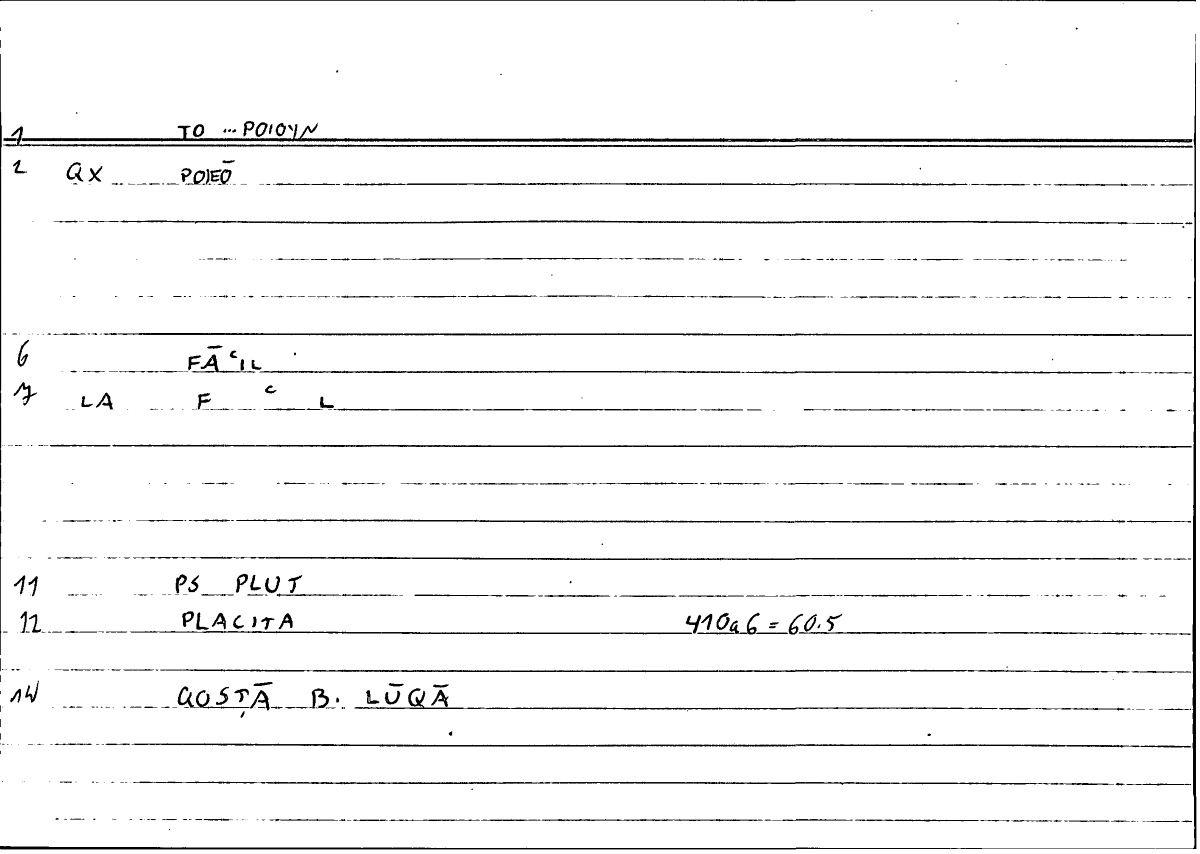 1 TO ... POIOYN
2 QX POIEŌ
6 FĀʿIL
7 LA F ʿ L
11 PS PLUT
12 PLACITA 410a6 = 60.5
14 QOSṬĀ B. LŪQĀ